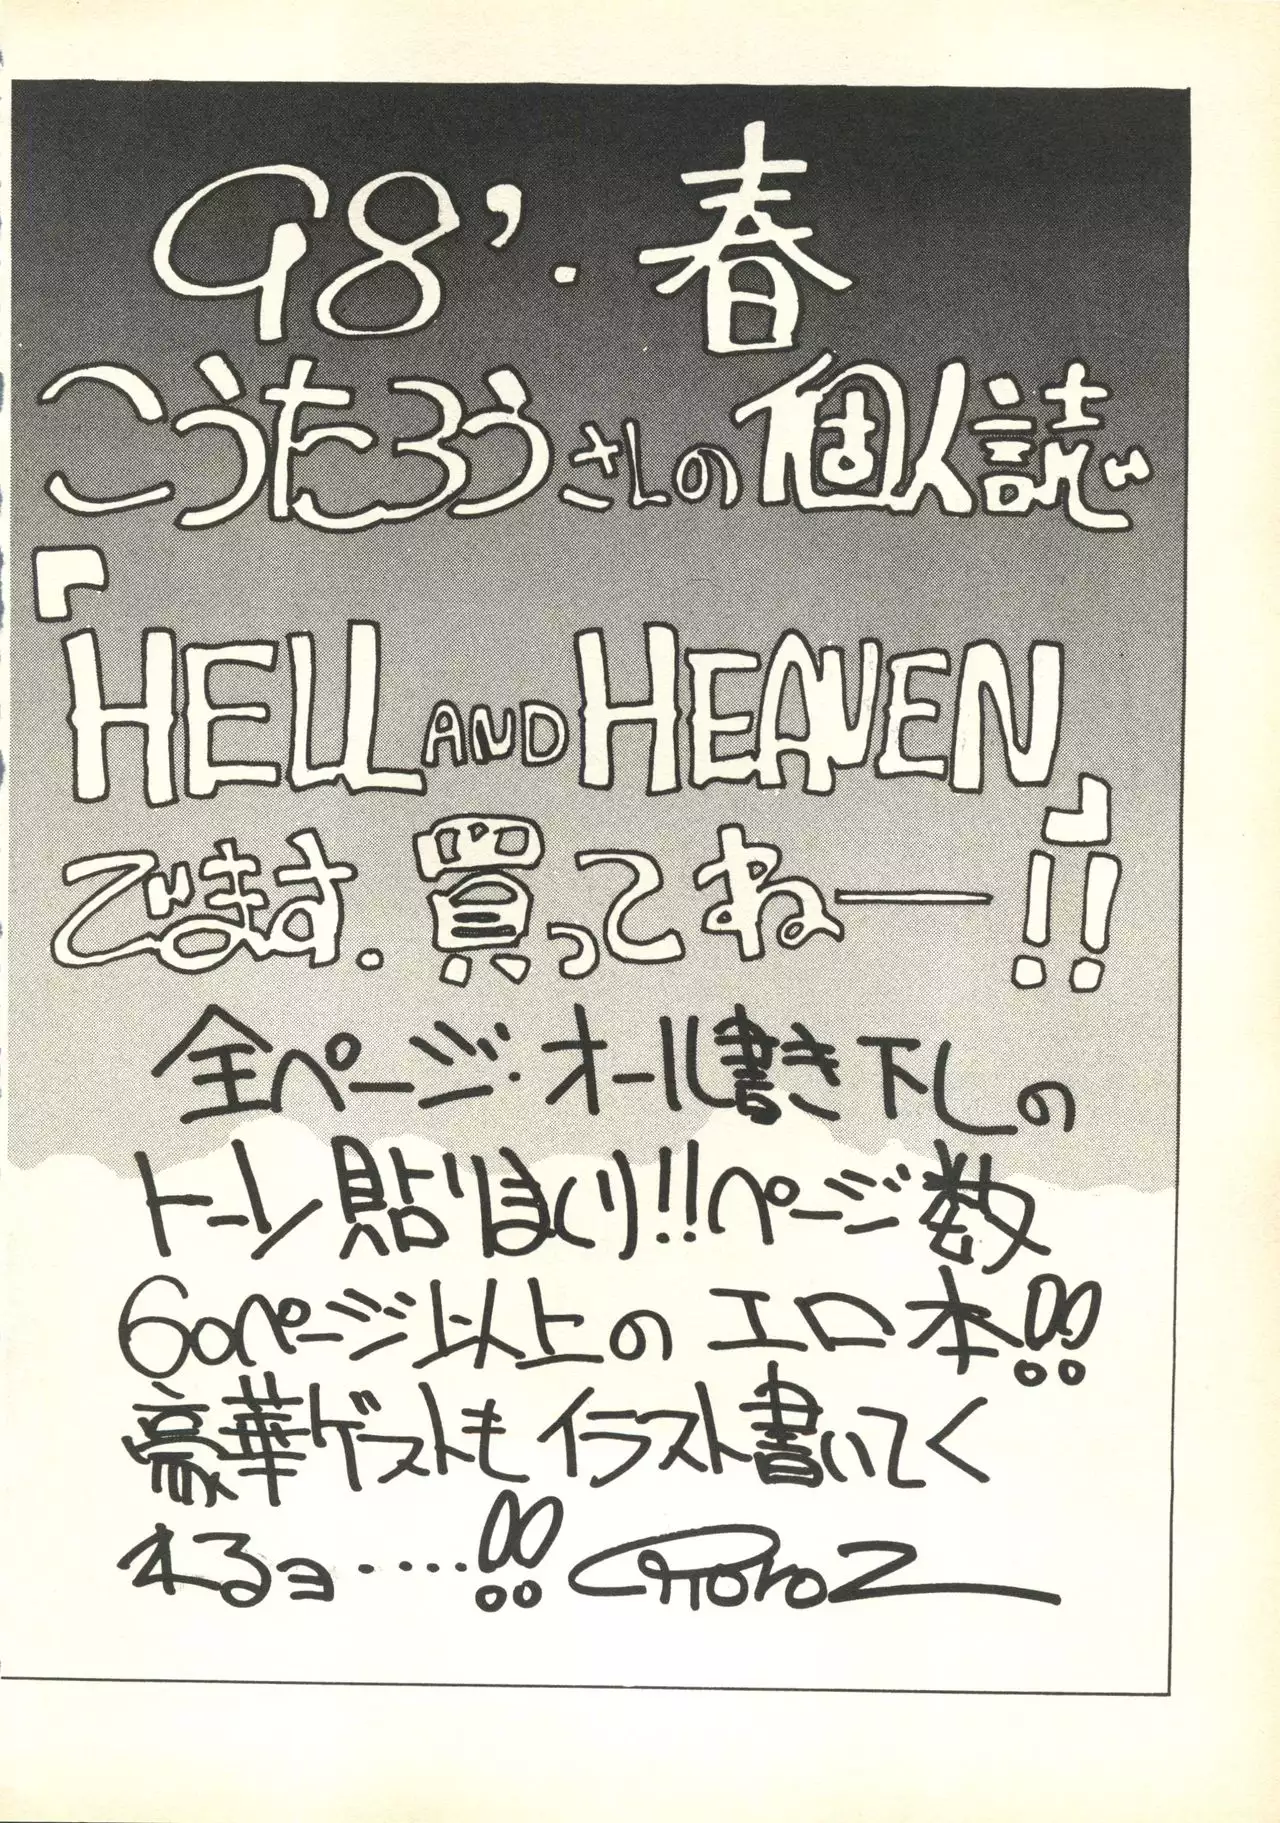 98'・春
こうたろうさんの個人誌が
『HELL AND HEAVEN』
でます.買ってねー!!
全ページ・オール書き下しの
トーン貼りまくり!!ページ数
60ページ以上のエロ本!!
豪華ゲストもイラスト書いてく
れるョ・・・・・!!